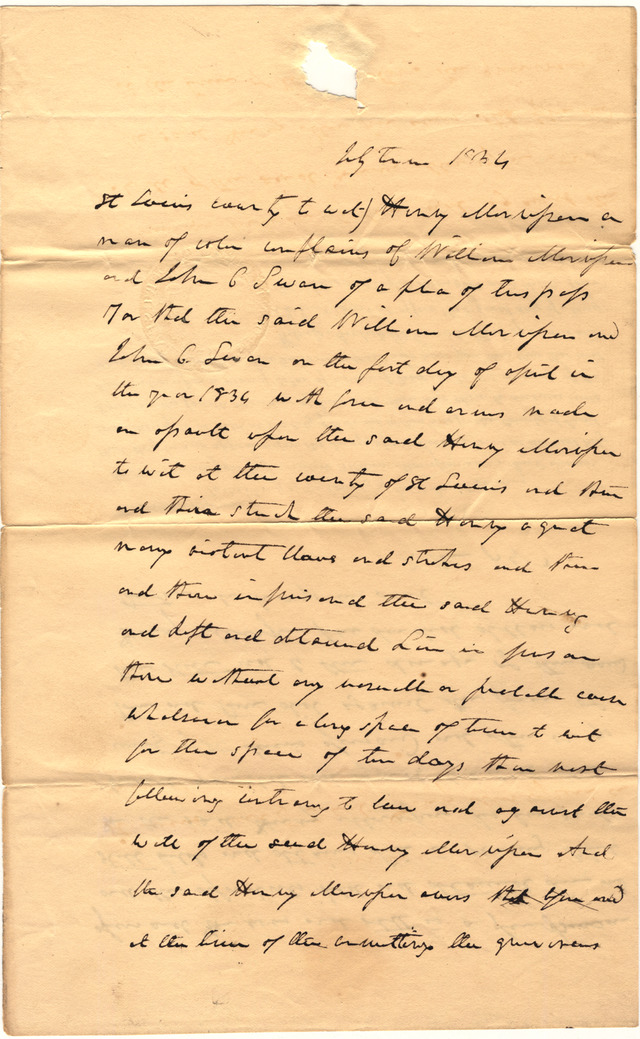 July Term 1834
St Louis county to wit) Henry Morrison a
man of color complains of William Morrison
and John C Swan of a plea of trespass
For that the said William Morrison and
John C. Swan on the first day of april in
the year 1834 with force and arms made
an assault upon the said Henry Morrison
to wit at the county of St Louis and then
and there struck the said Henry a great
many violent blows and strokes and then
and there imprisoned the said Henry
and kept and detained him in prison
there without any reasonable or probable cause
whatsoever for a long space of time to wit
for the space of ten days then next
following contrary to law and against the
will of the said Henry Morrison And
the said Henry Morrison avers that before and
at the time of the committing the grievances